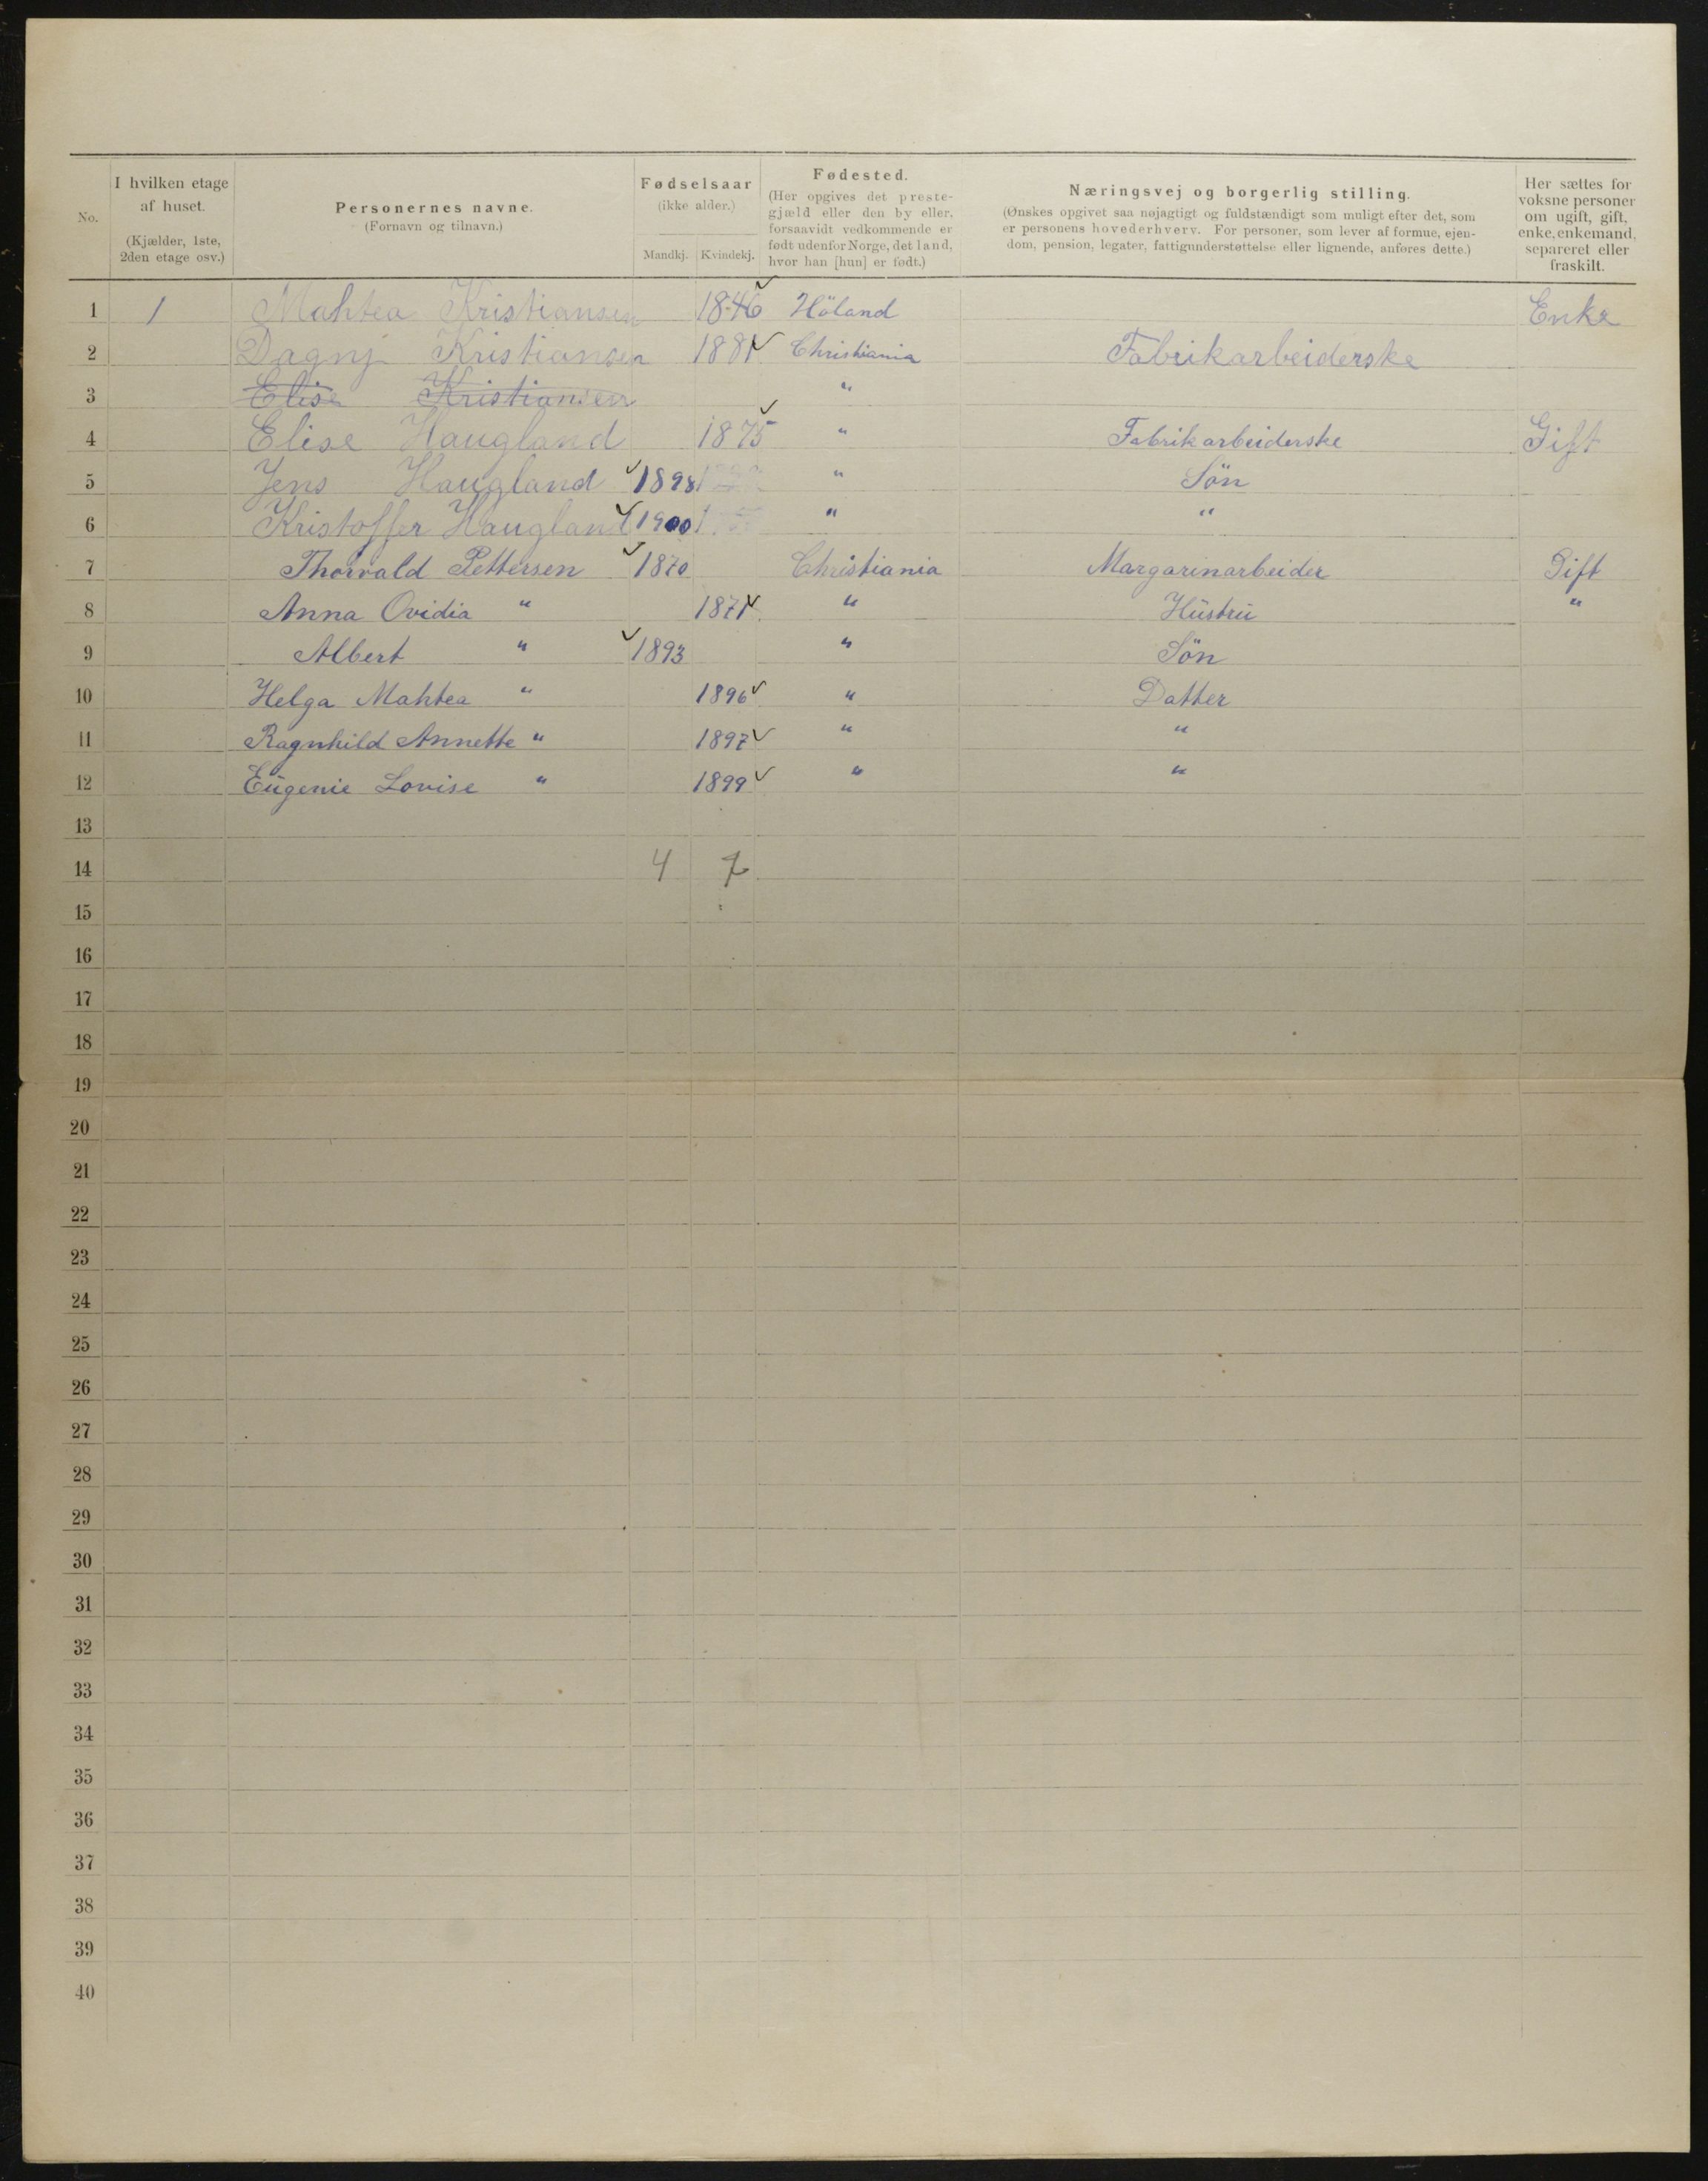 No.
I hvilken etage af huset. (Kjælder, 1ste, 2den etage osv.)
Personernes navne. (Fornavn og tilnavn.)
Fødselsaar (ikke alder.) Mandkj. Kvindekj.
Fødested. (Her opgives det prestegjæld eller den by eller, forsaavidt vedkommende er født udenfor Norge, det land, hvor han [hun] er født.)
Næringsvej og borgerlig stilling. (Ønskes opgivet saa nøjagtigt og fuldstændigt som muligt efter det, som er personens hovederhverv. For personer, som lever af formue, ejendom, pension, legater, fattigunderstøttelse eller lignende, anføres dette.)
Her sættes for voksne personer om ugift, gift, enke, enkemand, separeret eller fraskilt.
1 1 Mahtea Kristiansen 1846 Höland Enke
2 Dagny Kristiansen 1881 Christiania Fabrikarbeiderske
3 Elise Kristiansen "
4 Elise Haugland 1875 " Fabrikarbeiderske Gift
5 Jens Haugland 1898 " Sön
6 Kristoffer Haugland 1900 " "
7 Thorvald Pettersen 1870 Christiania Margarinarbeider Gift
8 Anna Ovidia " 1871 " Hüstrü "
9 Albert " 1893 " Sön
10 Helga Mahtea " 1896 " Datter
11 Ragnhild Annette " 1897 " "
12 Eügenie Lovise " 1899 " "
13
14 4 7
15
16
17
18
19
20
21
22
23
24
25
26
27
28
29
30
31
32
33
34
35
36
37
38
39
40